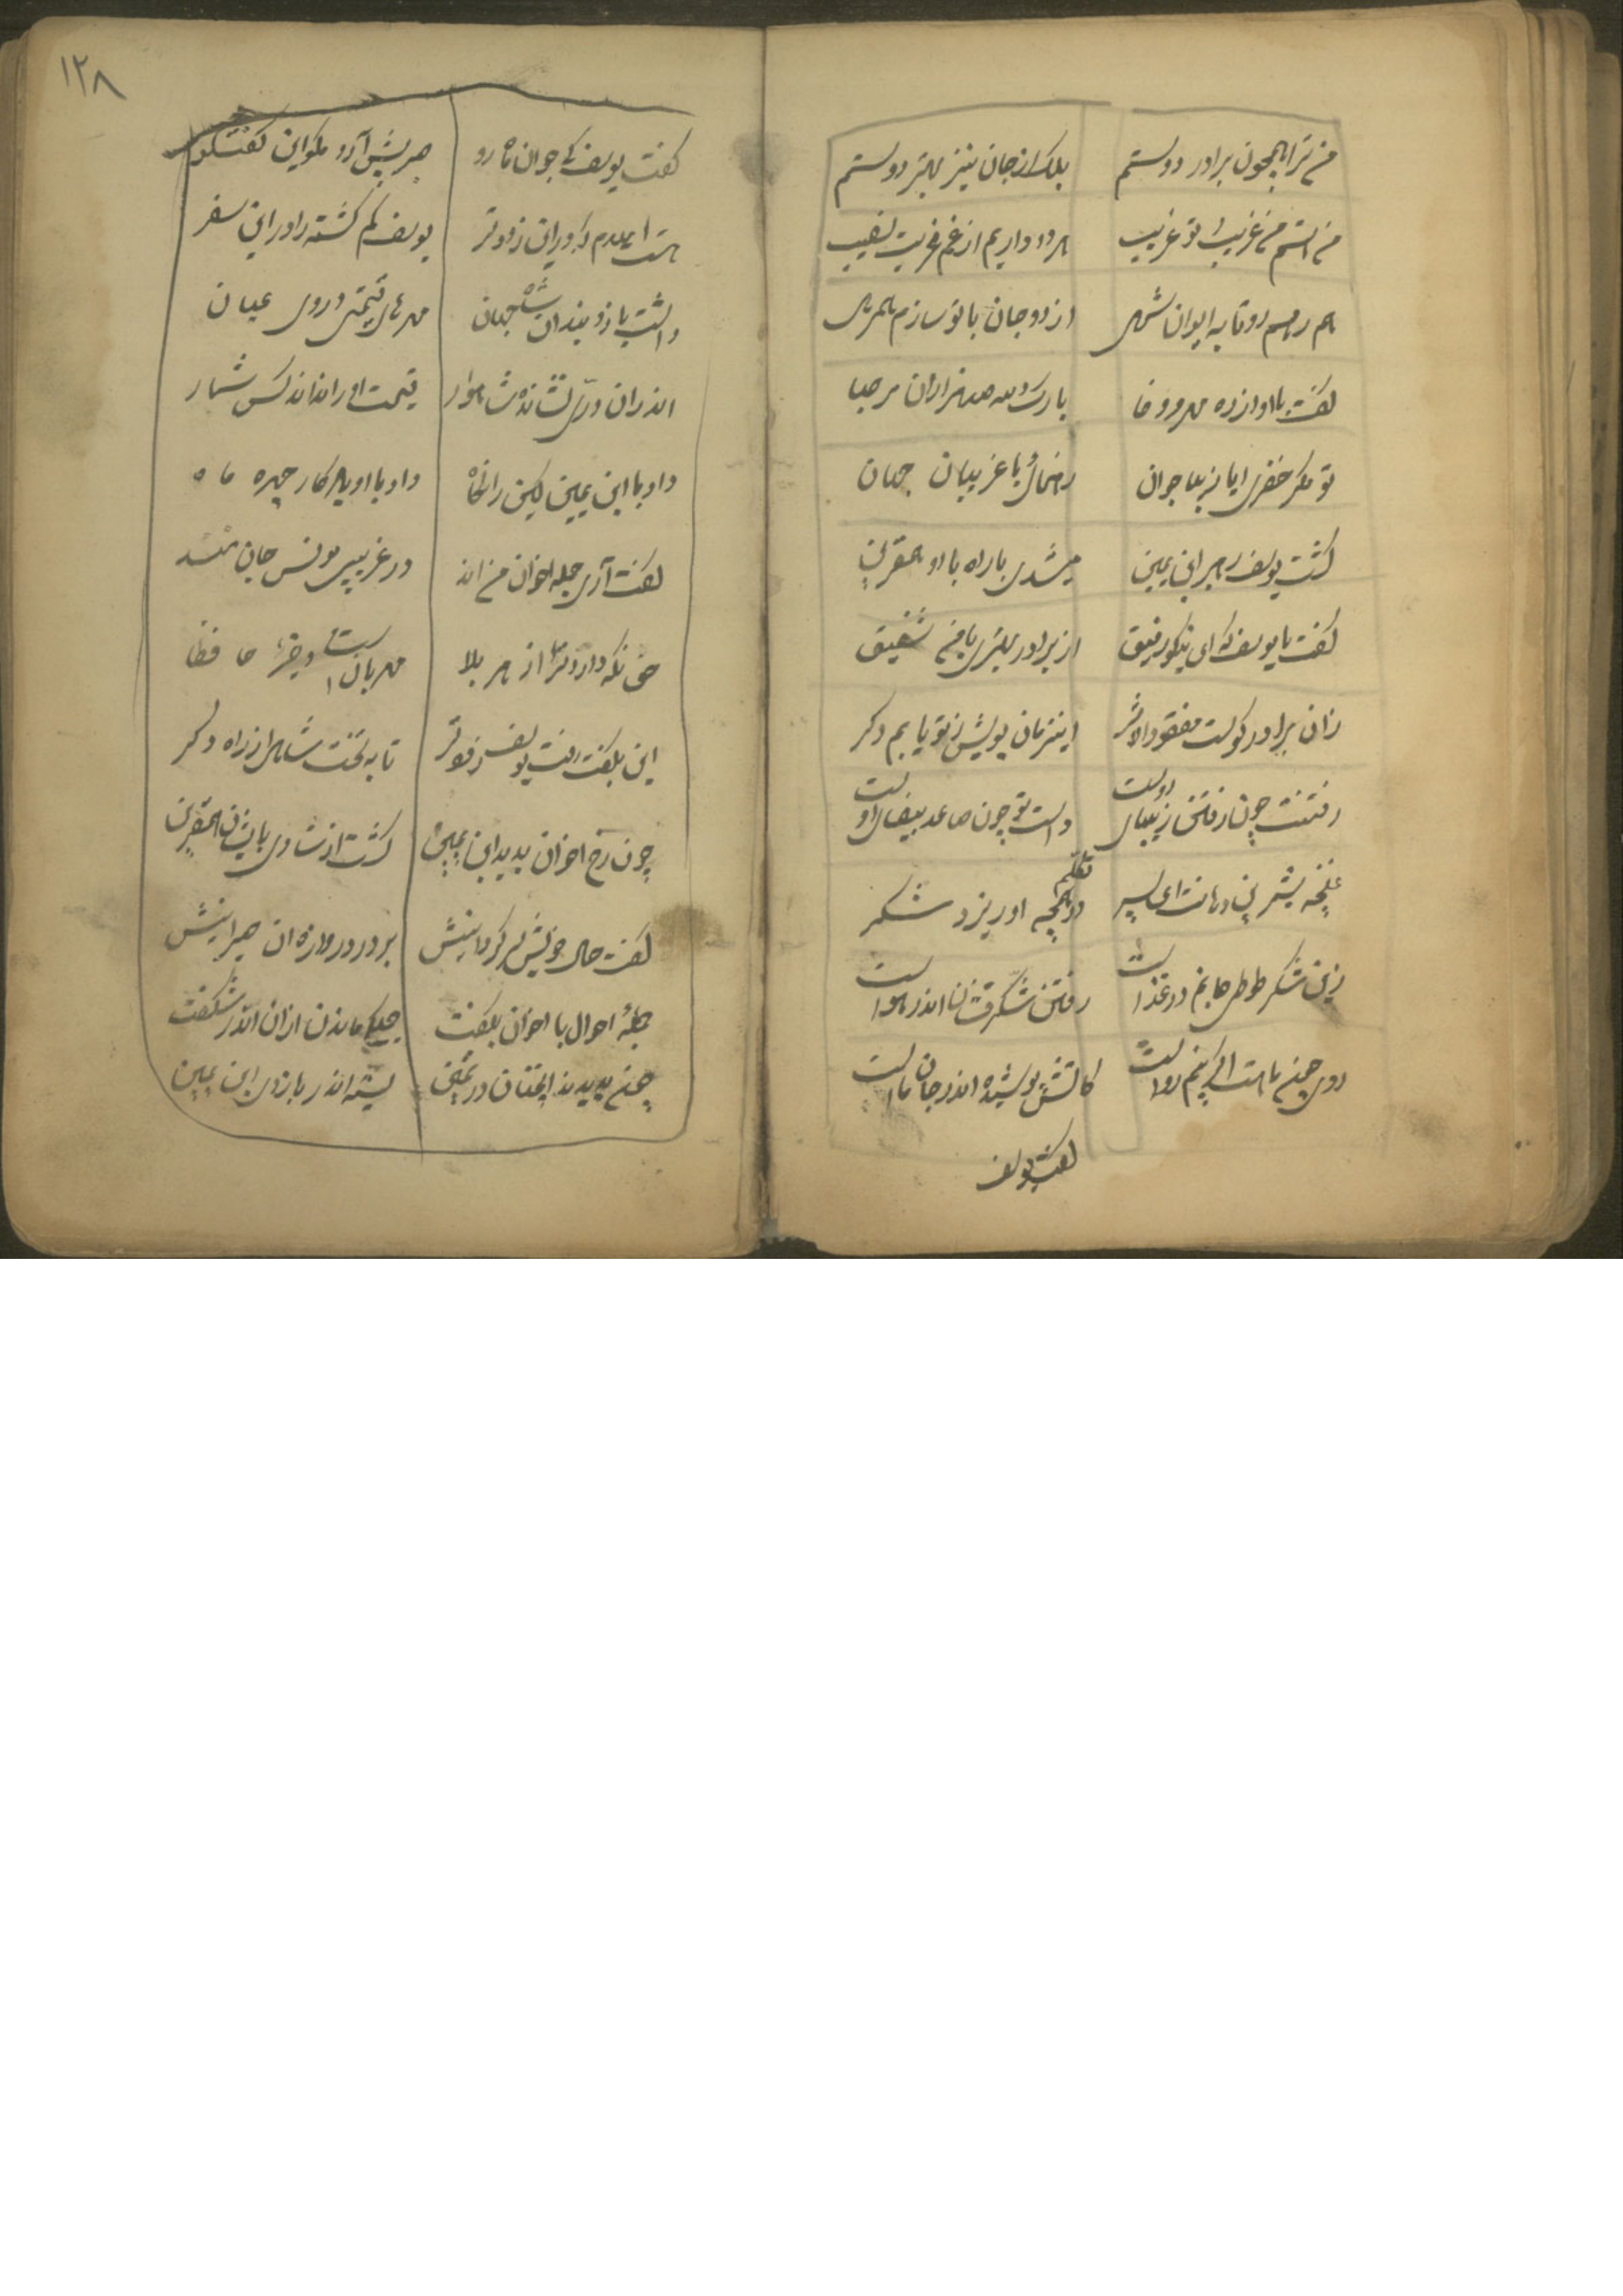 من ترا همچون برادر دوستم بلک از جان نیز بهتر دوستم
من غریب تو غریب هر دو داریم از غم غربت نصیب
هم رهیم رو تا به ایوان شهی از دو جان با تو سازم همرهی
گفت با او از ره مهر و وفا بارک الله صد هزاران مرحبا
تو مگر خضری ایا زیبا جوان رهنمائی با غریبان جهان
گشت یوسف رهبر ابن یمین میشدی با راه با او همقرین
گفت با یوسف که ای نیکو رفیق از برادر بهتری با من شفیق
زان برادر کوست مفقود الاثر اینزمان بویش ز تو یابم دگر
رفتنت چون رفتن زیبای اوست دست تو چون ساعد بیضای اوست
غنچه شیرین دهانت ای پسر در تکلم همچه او ریزد شکر
زین شکر طوطی جانم در غذاست رفتن شکرفشان اندر هواست
روی چون ماهت اگر بینم رواست کاتش پوشیده اندر جان ماست
گفت یوسف
۱۲۸
گفت یوسف کای جوان ماه رو صبر پیش آر و مگو این گفتگو
هست امیدم که زودتر یوسف گم گشته را در این سفر
داشت بازو بند آن شاه جهان مهرهای قیمتی در وی عیان
اندران دری نشانده شاهوار قیمت او را نداند کس شمار
داد با ابن یمین داد با او بهر کار چهره ماه
گفت آری جمله اخوان من اند در غریبی مونس جان منند
حق نگه دارد ترا از هر بلا مهربان است و خیرا حافظا
این بگفت یوسف زودتر تا به تخت شاهی از راه دگر
چون رخ اخوان بدید ابن یمین گشت از شادی بایشان همقرین
گفت حال خویش بر در دروازه آن حیرانیش
جمله احوال با اخوان بگفت جمله ماندن ازان اندر شگفت
چون بدیدند در ثمین بسته اندر بازوی ابن یمین